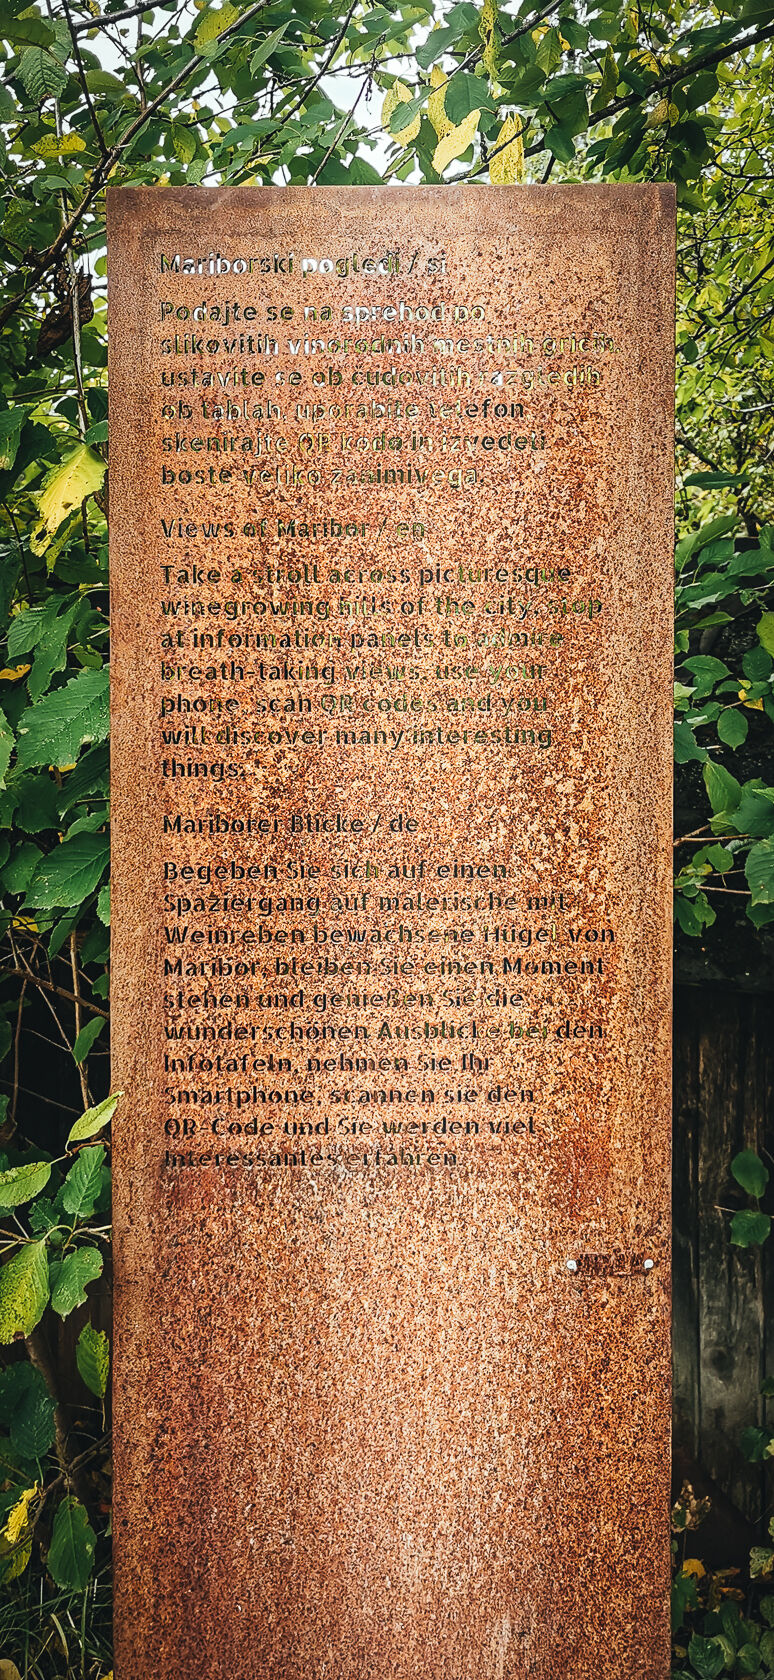 Mariborski pogledi / si
Podajte se na sprehod po
slikovitih vinorodnih mestnih gričih,
ustavite se ob čudovitih razgledih
ob tablah, uporabite telefon
skenirajte QR kodo in izvedeti
boste veliko zanimivega.
Views of Maribor / en
Take a stroll across picturesque
winegrowing hills of the city, stop
at information panels to admire
breath-taking views, use your
phone, scan QR codes and you
will discover many interesting
things.
Mariborer Blicke / de
Begeben Sie sich auf einen
Spaziergang auf malerische mit
Weinreben bewachsene Hügel von
Maribor, bleiben Sie einen Moment
stehen und genießen Sie die
wunderschönen Ausblicke bei den
Infotafeln, nehmen Sie Ihr
Smartphone, scannen sie den
QR-Code und Sie werden viel
Interessantes erfahren.